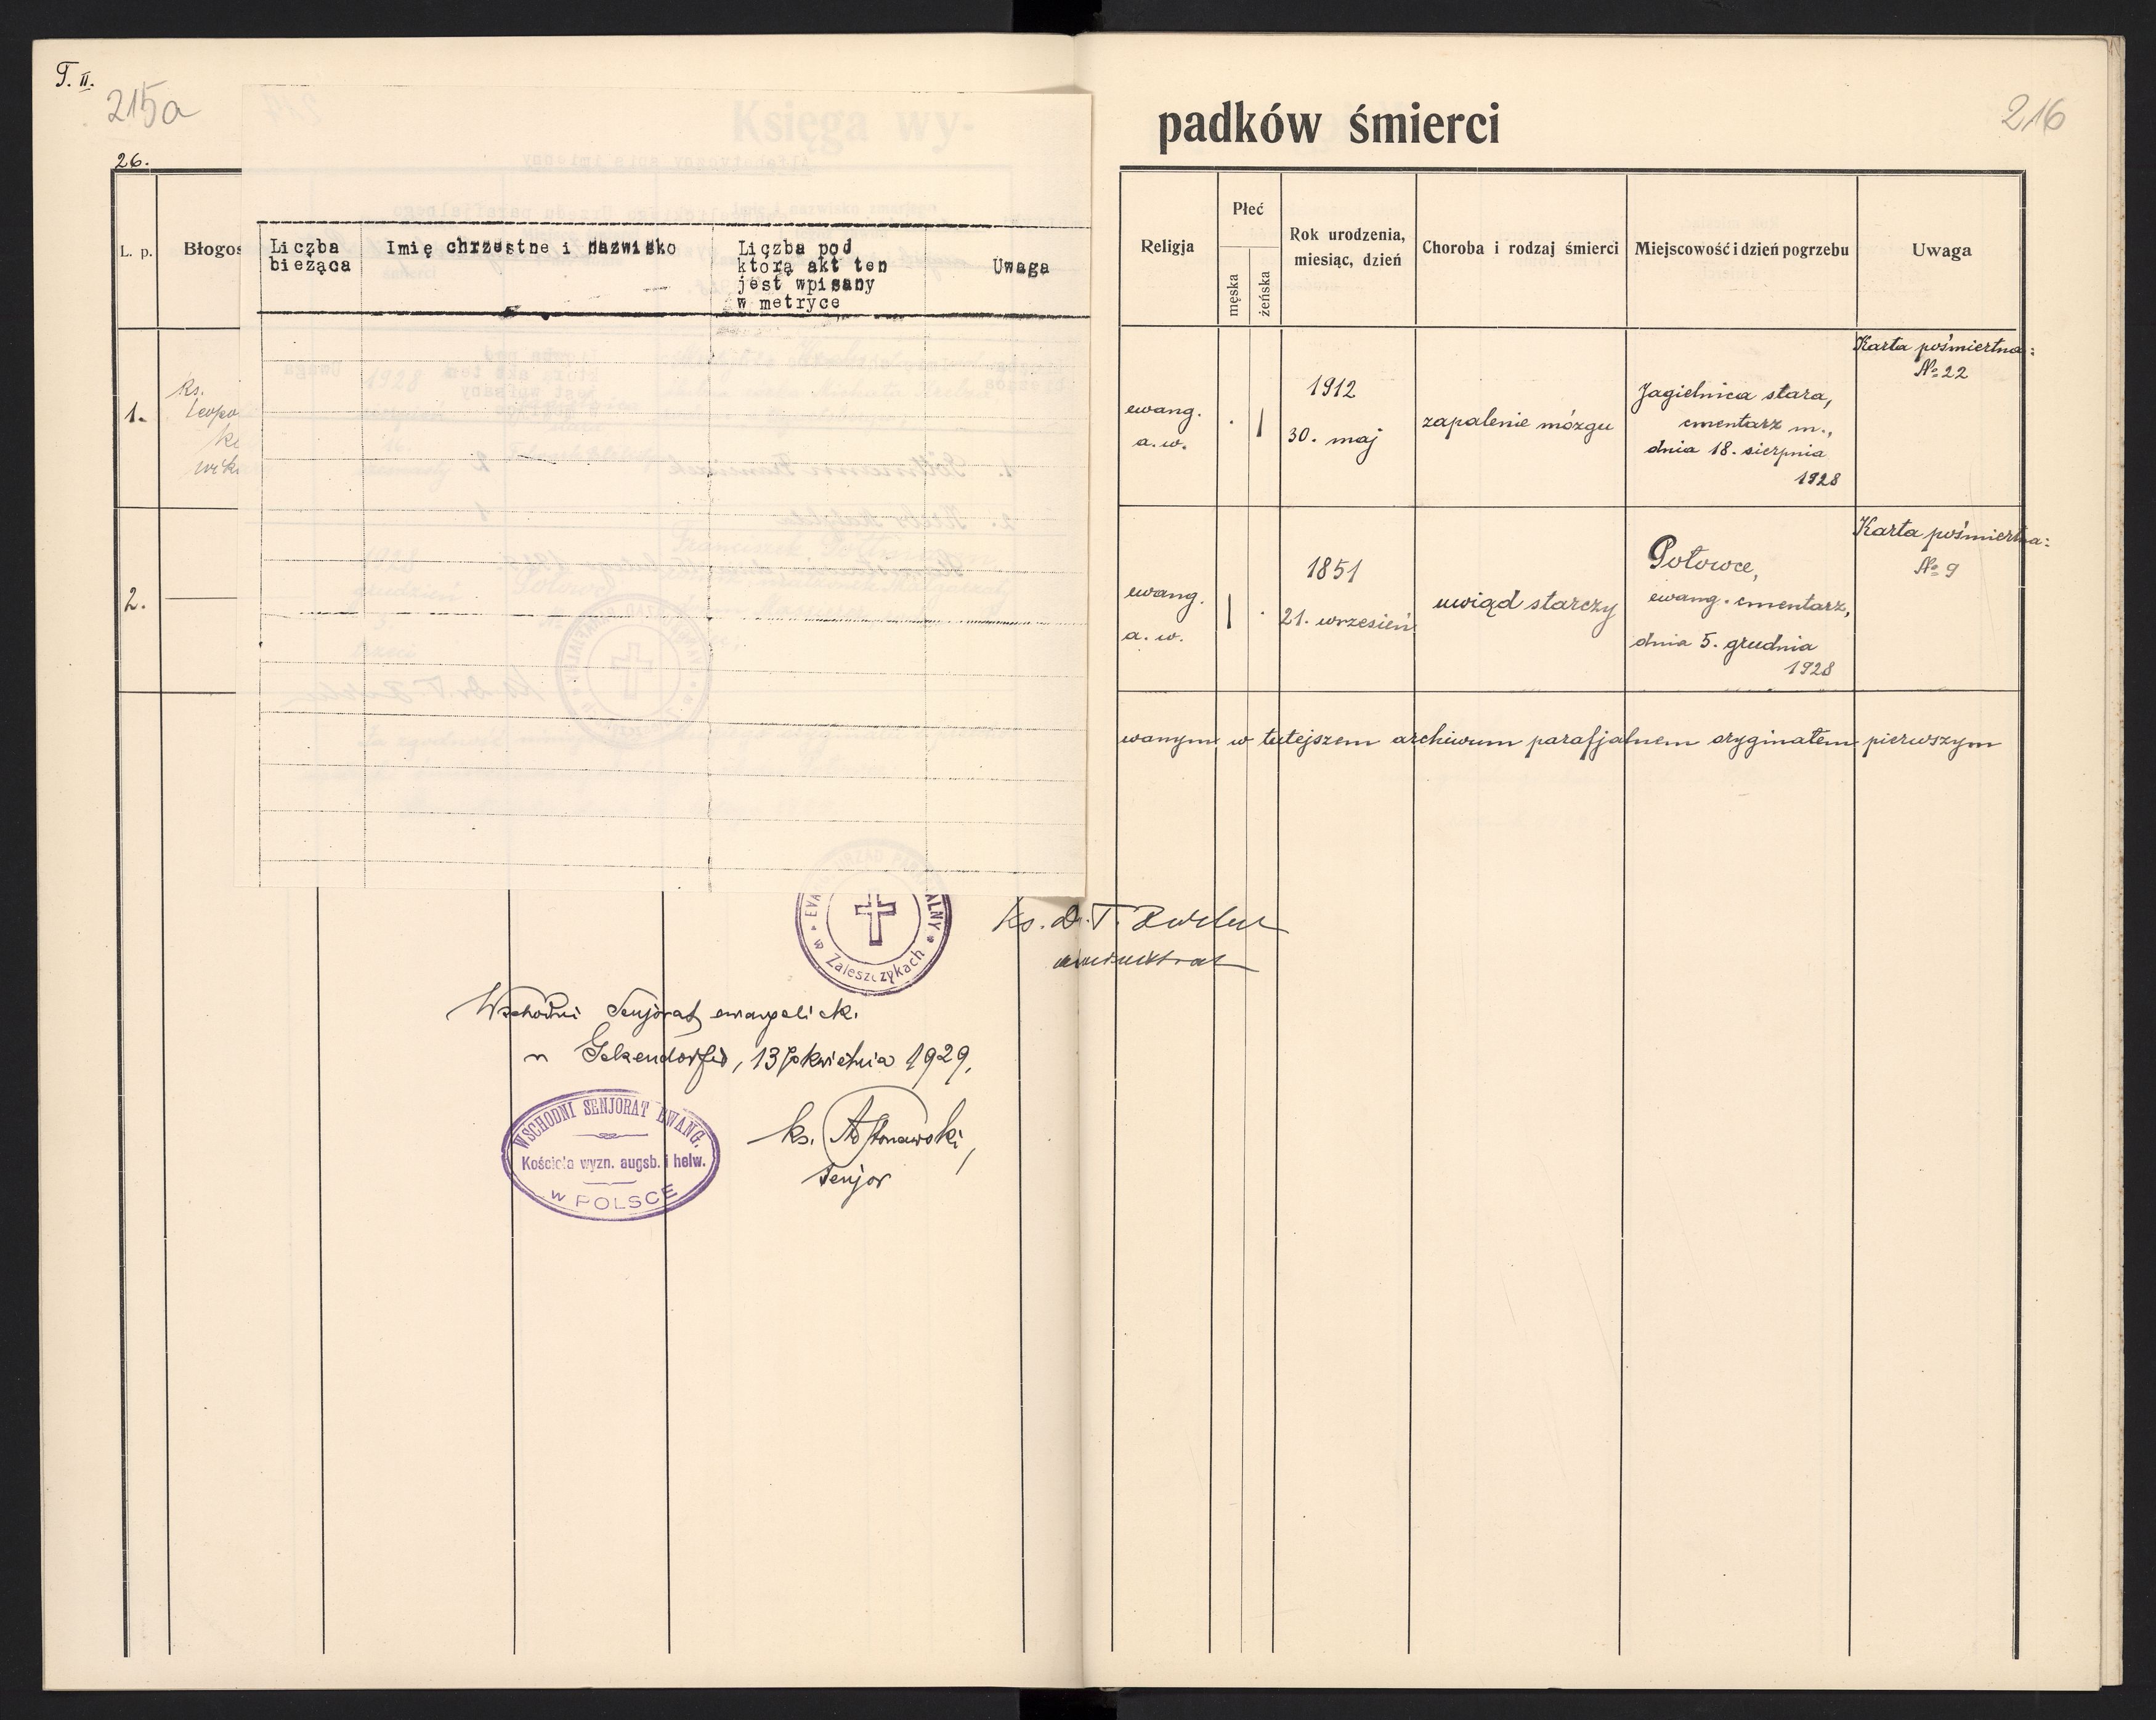 T. II.
215a
26.
L. p.
Błogos
Liczba
bieżąca
Imię chrzestne i nazwisko
Liczba pod
którą akt ten
jest wpisany
w metryce
Uwaga
1.
ks.
Leopo
2.
EVA ALNY
w Zaleszczykach
Ks. Dr. T.
Wschodni Senjorat ewangelicki.
13 kwietnia 1929,
WSCHODNI SENJORAT EWANG.
Kościoła wyzn. augsb. i helw.
w POLSCE
ks.
senjor
padków śmierci
216
Religja
Płeć
męska
żeńska
Rok urodzenia,
miesiąc, dzień
Choroba i rodzaj śmierci
Miejscowość i dzień pogrzebu
Uwaga
ewang.
a. w.
.
1
1912
30. maj
zapalenie mózgu
Jagielnica stara,
cmentarz m.,
dnia 18. sierpnia
1928
Karta pośmiertna:
№ 22
ewang.
a. w.
1
.
1851
21. wrzesień
uwiąd starczy
Połowce,
ewang. cmentarz,
dnia 5. grudnia
1928
Karta pośmiertna:
№ 9
wanym w tutejszem archiwum parafjalnem oryginałem pierwszym